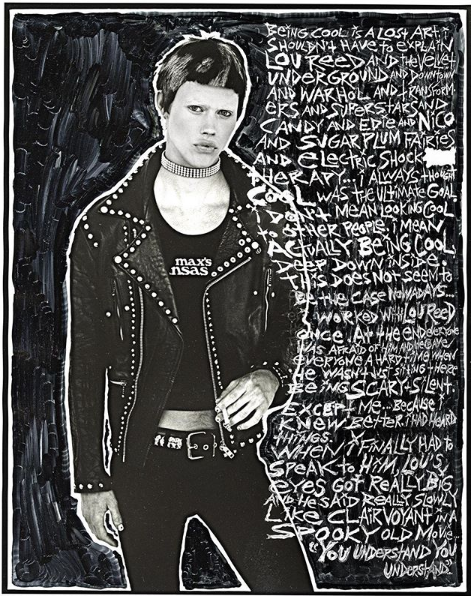 BEING COOL IS A LOST ART. I
SHOULDN'T HAVE TO EXPLAIN
LOU REED AND THE VELVET
UNDERGROUND AND DOWNTOWN
AND WARHOL AND TRANSFORM
ERS AND SUPERSTARS AND
CANDY AND EDIE AND NICO
AND SUGAR PLUM FAIRIES
AND ELECTRIC SHOCK
THERAPY.. I ALWAYS THOUGHT
COOL WAS THE ULTIMATE GOAL
I DON'T MEAN LOOKING COOL
TO OTHER PEOPLE, I MEAN
ACTUALLY BEING COOL
DEEP DOWN INSIDE.
THIS DOES NOT SEEM TO
BE THE CASE NOWADAYS...
I WORKED WITH LOU REED
ONCE. AT THE END EVERYONE
WAS AFRAID OF HIM AND HE GAVE
EVERYONE A HARD TIME WHEN
HE WASN'T JUST SITTING THERE
BEING SCARY-SILENT.
EXCEPT ME... BECAUSE I
KNEW BETTER. I HAD HEARD
THINGS.
WHEN I FINALLY HAD TO
SPEAK TO HIM, LOU'S
EYES GOT REALLY BIG
AND HE SAID REALLY SLOWLY
LIKE CLAIRVOYANT IN A
SPOOKY OLD MOVIE,
"YOU UNDERSTAND YOU
UNDERSTAND."
max's
nsas